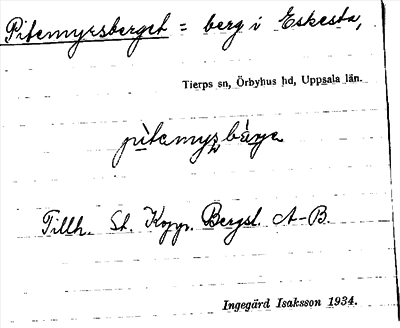 Pitemyrsberget = berg i Eskesta,
Tierps sn, Örbyhus hd, Uppsala län.
pìtemyṣbàrye
Tillh. St. Kopp. Bergsl. A-B.
Ingegärd Isaksson 1934.